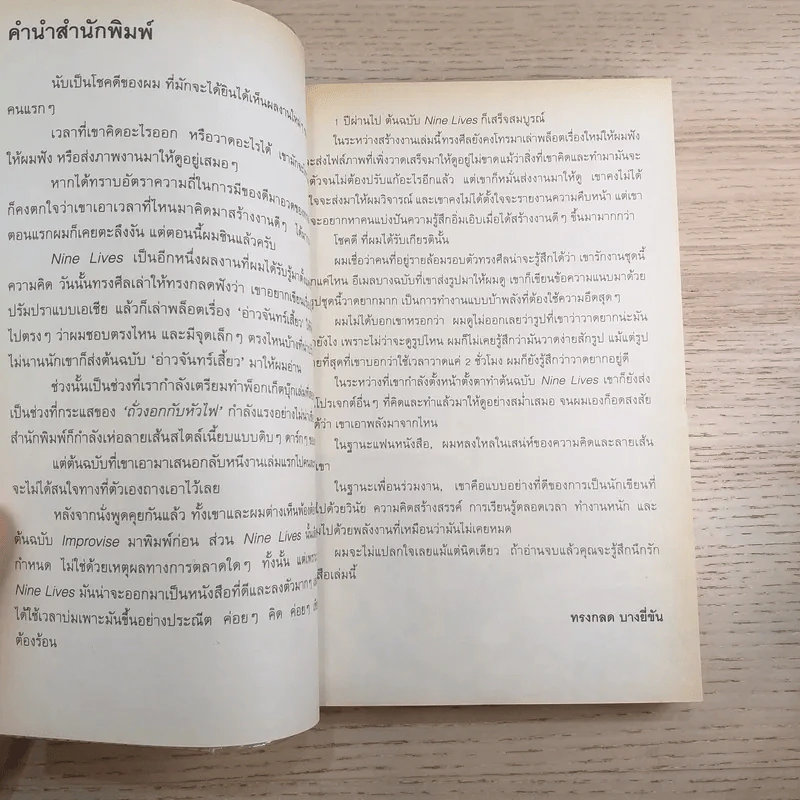 คำนำสำนักพิมพ์
นับเป็นโชคดีของผม ที่มักจะได้ยินได้เห็นผลงานใหม่ๆ
คนแรกๆ
เวลาที่เขาคิดอะไรออก หรือวาดอะไรได้
ให้ผมฟัง หรือส่งภาพงานมาให้ดูอยู่เสมอๆ
หากได้ทราบอัตราความถี่ในการมีของดีมาอวด
ก็คงตกใจว่าเขาเอาเวลาที่ไหนมาคิดมาสร้างงานดีๆ
ตอนแรกผมก็เคยตะลึงงัน แต่ตอนนี้ผมชินแล้วครับ
Nine Lives เป็นอีกหนึ่งผลงานที่ผมได้รับรู้มา
ความคิด วันนั้นทรงศีลเล่าให้ทรงกลดฟังว่า เขาอยากเขียน
ปรัมปราแบบเอเชีย แล้วก็เล่าพล็อตเรื่อง 'อ่าวจันทร์เสี้ยว'
ไปตรงๆ ว่าผมชอบตรงไหน และมีจุดเล็กๆ ตรงไหนบ้าง
ไม่นานนักเขาก็ส่งต้นฉบับ 'อ่าวจันทร์เสี้ยว' มาให้ผมอ่าน
ช่วงนั้นเป็นช่วงที่เรากำลังเตรียมทำพ็อกเก็ตบุ๊กเล่ม
เป็นช่วงที่กระแสของ 'ถั่วงอกกับหัวไฟ' กำลังแรงอย่างไม่
สำนักพิมพ์ก็กำลังเห่อลายเส้นสไตล์เนี้ยบแบบดิบๆ ดาร์กๆ
แต่ต้นฉบับที่เขาเอามาเสนอกลับหนีงานเล่มแรกไป
จะไม่ได้สนใจทางที่ตัวเองถางเอาไว้เลย
หลังจากนั่งพูดคุยกันแล้ว ทั้งเขาและผมต่างเห็นพ้อง
ต้นฉบับ Improvise มาพิมพ์ก่อน ส่วน Nine Lives นั้น
กำหนด ไม่ใช่ด้วยเหตุผลทางการตลาดใดๆ ทั้งนั้น แต่เพราะ
Nine Lives มันน่าจะออกมาเป็นหนังสือที่ดีและลงตัวมากๆ
ได้ใช้เวลาบ่มเพาะมันขึ้นอย่างประณีต ค่อยๆ คิด ค่อยๆ
ต้องร้อน
1 ปีผ่านไป ต้นฉบับ Nine Lives ก็เสร็จสมบูรณ์
ในระหว่างสร้างงานเล่มนี้ทรงศีลยังคงโทรมาเล่าพล็อตเรื่องใหม่ให้ผมฟัง
จะส่งไฟล์ภาพที่เพิ่งวาดเสร็จมาให้ดูอยู่ไม่ขาดแม้ว่าสิ่งที่เขาคิดและทำมามันจะ
ตัวจนไม่ต้องปรับแก้อะไรอีกแล้ว แต่เขาก็หมั่นส่งงานมาให้ดู เขาคงไม่ได้
ใจจะส่งมาให้ผมวิจารณ์ และเขาคงไม่ได้ตั้งใจจะรายงานความคืบหน้า แต่เขา
จะอยากหาคนแบ่งปันความรู้สึกอิ่มเอิบเมื่อได้สร้างงานดีๆ ขึ้นมามากกว่า
โชคดี ที่ผมได้รับเกียรตินั้น
ผมเชื่อว่าคนที่อยู่รายล้อมรอบตัวทรงศีลน่าจะรู้สึกได้ว่า เขารักงานชุดนี้
แค่ไหน อีเมลบางฉบับที่เขาส่งรูปมาให้ผมดู เขาก็เขียนข้อความแนบมาด้วย
รูปชุดนี้วาดยากมาก เป็นการทำงานแบบบ้าพลังที่ต้องใช้ความอึดสุดๆ
ผมไม่ได้บอกเขาหรอกว่า ผมดูไม่ออกเลยว่ารูปที่เขาว่าวาดยากน่ะมัน
ยังไง เพราะไม่ว่าจะดูรูปไหน ผมก็ไม่เคยรู้สึกว่ามันวาดง่ายสักรูป แม้แต่รูป
ายที่สุดที่เขาบอกว่าใช้เวลาวาดแค่ 2 ชั่วโมง ผมก็ยังรู้สึกว่าวาดยากอยู่ดี
ในระหว่างที่เขากำลังตั้งหน้าตั้งตาทำต้นฉบับ Nine Lives เขาก็ยังส่ง
โปรเจกต์อื่นๆ ที่คิดและทำแล้วมาให้ดูอย่างสม่ำเสมอ จนผมเองก็อดสงสัย
ได้ว่า เขาเอาพลังมาจากไหน
ในฐานะแฟนหนังสือ, ผมหลงใหลในเสน่ห์ของความคิดและลายเส้น
เขา
ในฐานะเพื่อนร่วมงาน, เขาคือแบบอย่างที่ดีของการเป็นนักเขียนที่
ไปด้วยวินัย ความคิดสร้างสรรค์ การเรียนรู้ตลอดเวลา ทำงานหนัก และ
มไปด้วยพลังงานที่เหมือนว่ามันไม่เคยหมด
ผมจะไม่แปลกใจเลยแม้แต่นิดเดียว ถ้าอ่านจบแล้วคุณจะรู้สึกนึกรัก
สือเล่มนี้
ทรงกลด บางยี่ขัน